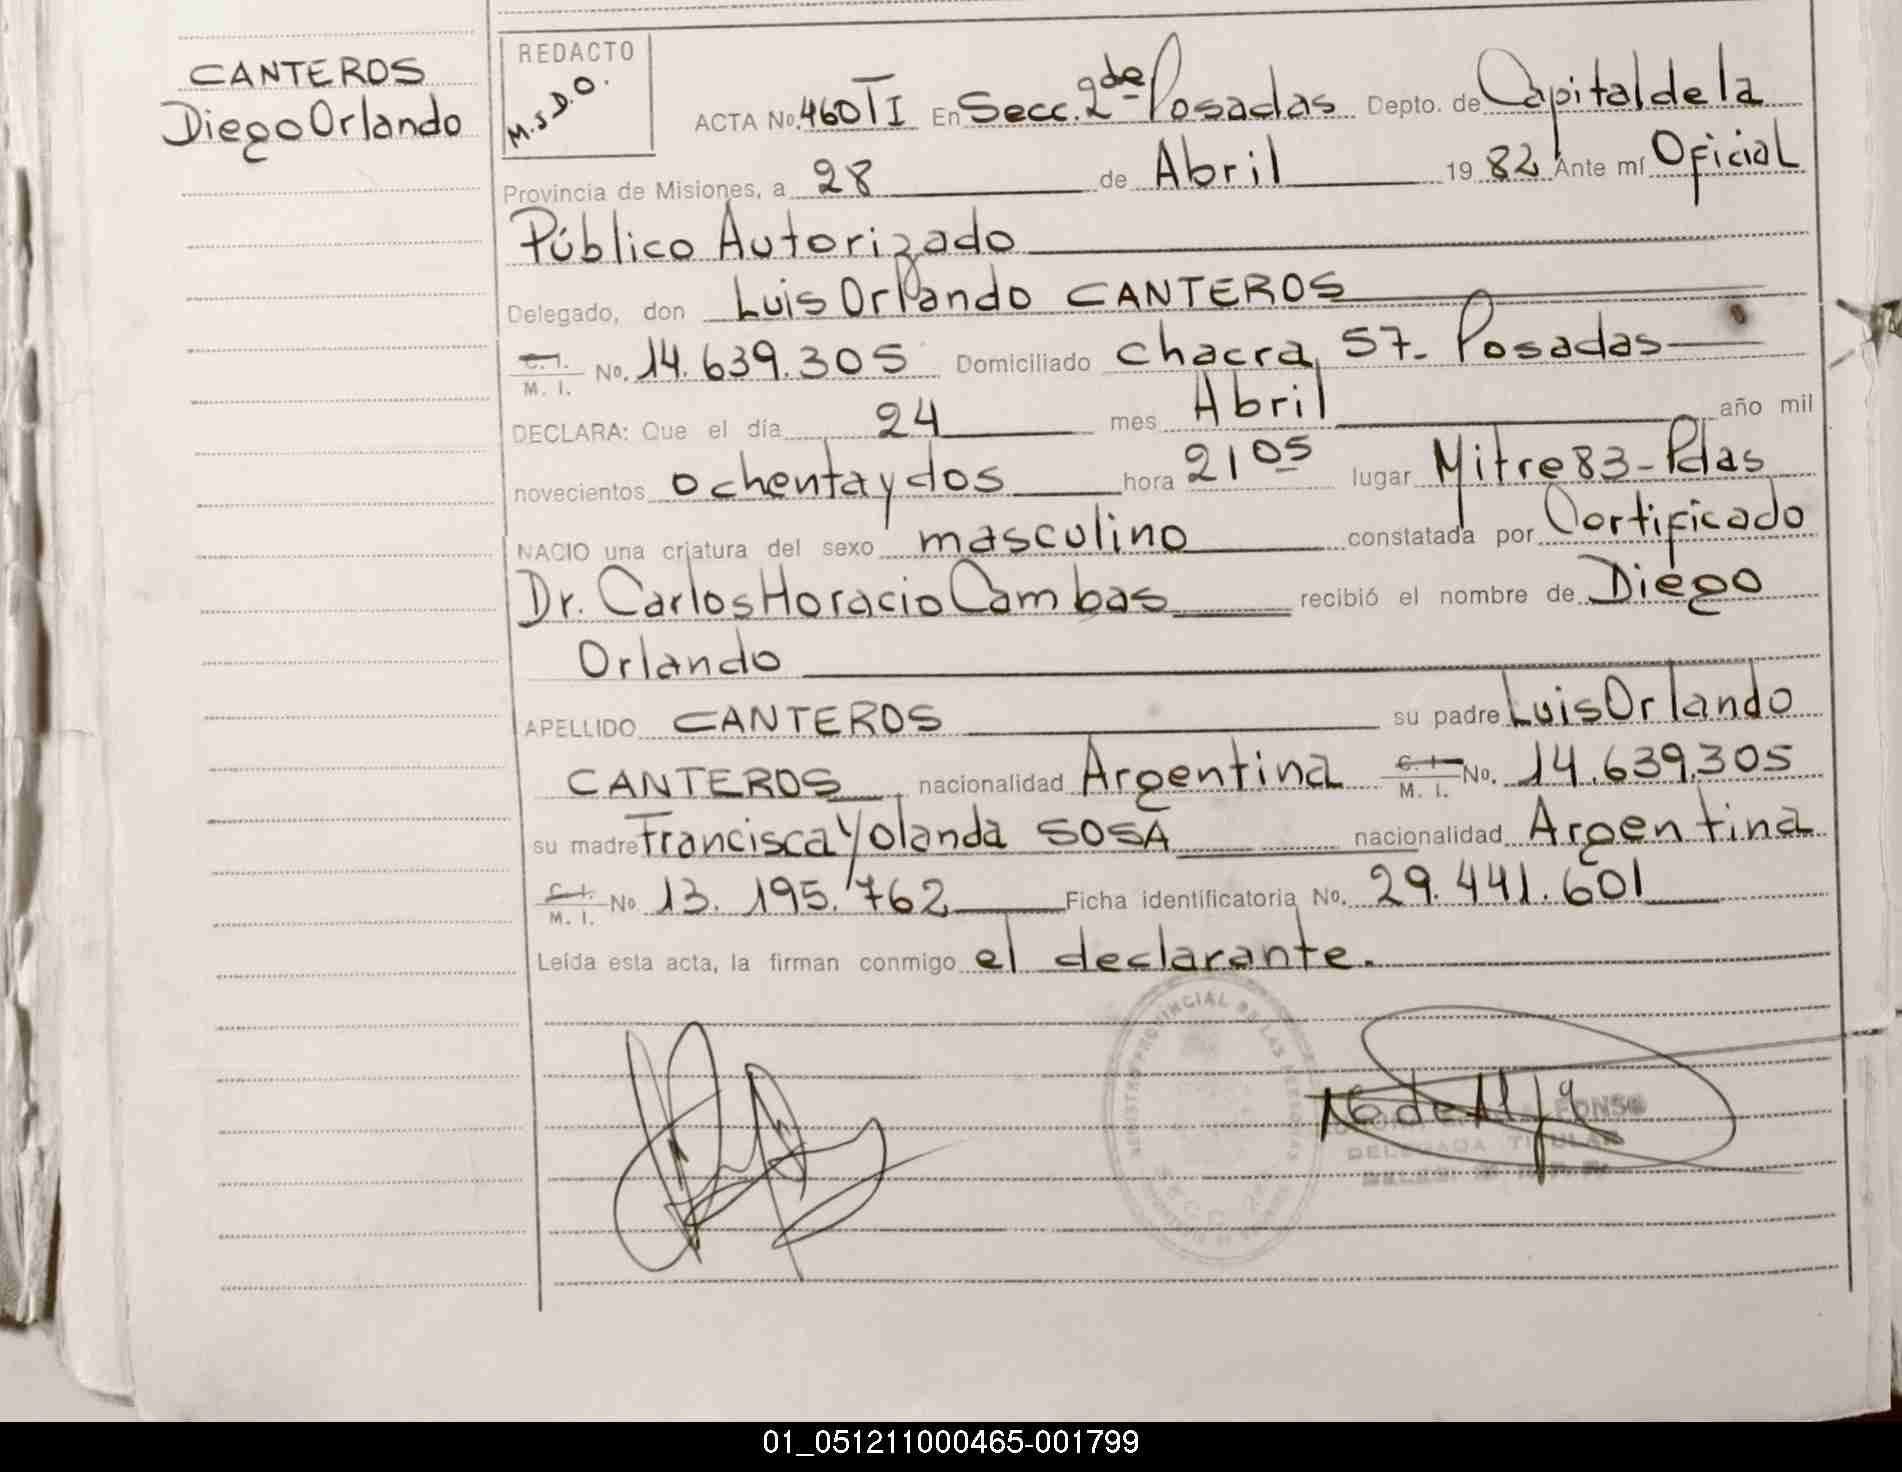 CANTEROS
Diego Orlando
REDACTO
M.S.D.O.
ACTA No. 460 TI En Secc. 2da de Posadas Depto. de Capital de la
Provincia de Misiones, a 28 de Abril 1982 Ante mí Oficial
Público Autorizado
Delegado, don Luis Orlando CANTEROS
C.I. M.I. No. 14.639.305 Domiciliado chacra 57- Posadas
DECLARA: Que el día 24 mes Abril año mil
novecientos ochenta y dos hora 21 05 lugar Mitre 83-Pdas
NACIO una criatura del sexo masculino constatada por Certificado
Dr. Carlos Horacio Cambas recibió el nombre de Diego
Orlando
APELLIDO CANTEROS su padre Luis Orlando
CANTEROS nacionalidad Argentina C.I. M.I. No. 14.639.305
su madre Francisca Yolanda SOSA nacionalidad Argentina
C.I. M.I. No 13.195.762 Ficha identificatoria No. 29.441.601
Leída esta acta, la firman conmigo el declarante.
REGISTRO PROVINCIAL DE LAS PERSONAS
DELEGADA TITULAR
01_051211000465-001799